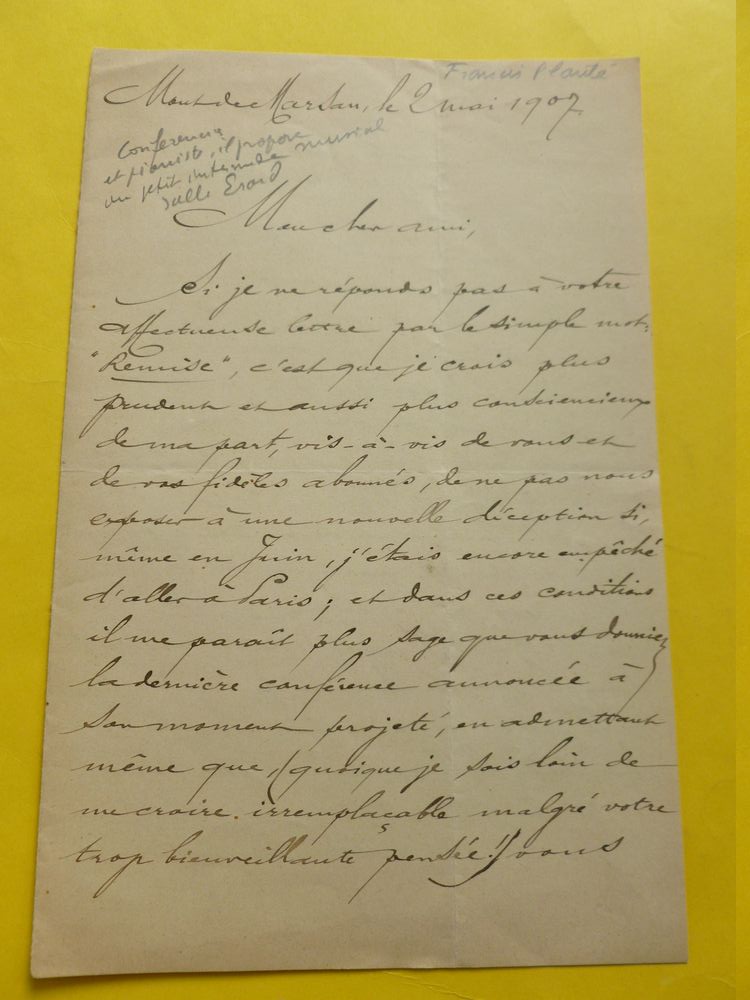 Francis Planté
Mont de Marsan, le 2 mai 1907
Conférencier
et pianiste, il propose
un petit intermède musical
salle Erard
Mon cher ami,
Si je ne réponds pas à votre
affectueuse lettre par le simple mot:
"Remise", c'est que je crois plus
prudent et aussi plus consciencieux
de ma part, vis-à-vis de vous et
de vos fidèles abonnés, de ne pas nous
exposer à une nouvelle déception si,
même en Juin, j'étais encore empêché
d'aller à Paris; et dans ces conditions
il me paraît plus sage que vous donniez
la dernière conférence annoncée à
son moment projeté, en admettant
même que, (quoique je sois loin de
me croire irremplaçable malgré votre
trop bienveillante pensée!) vous